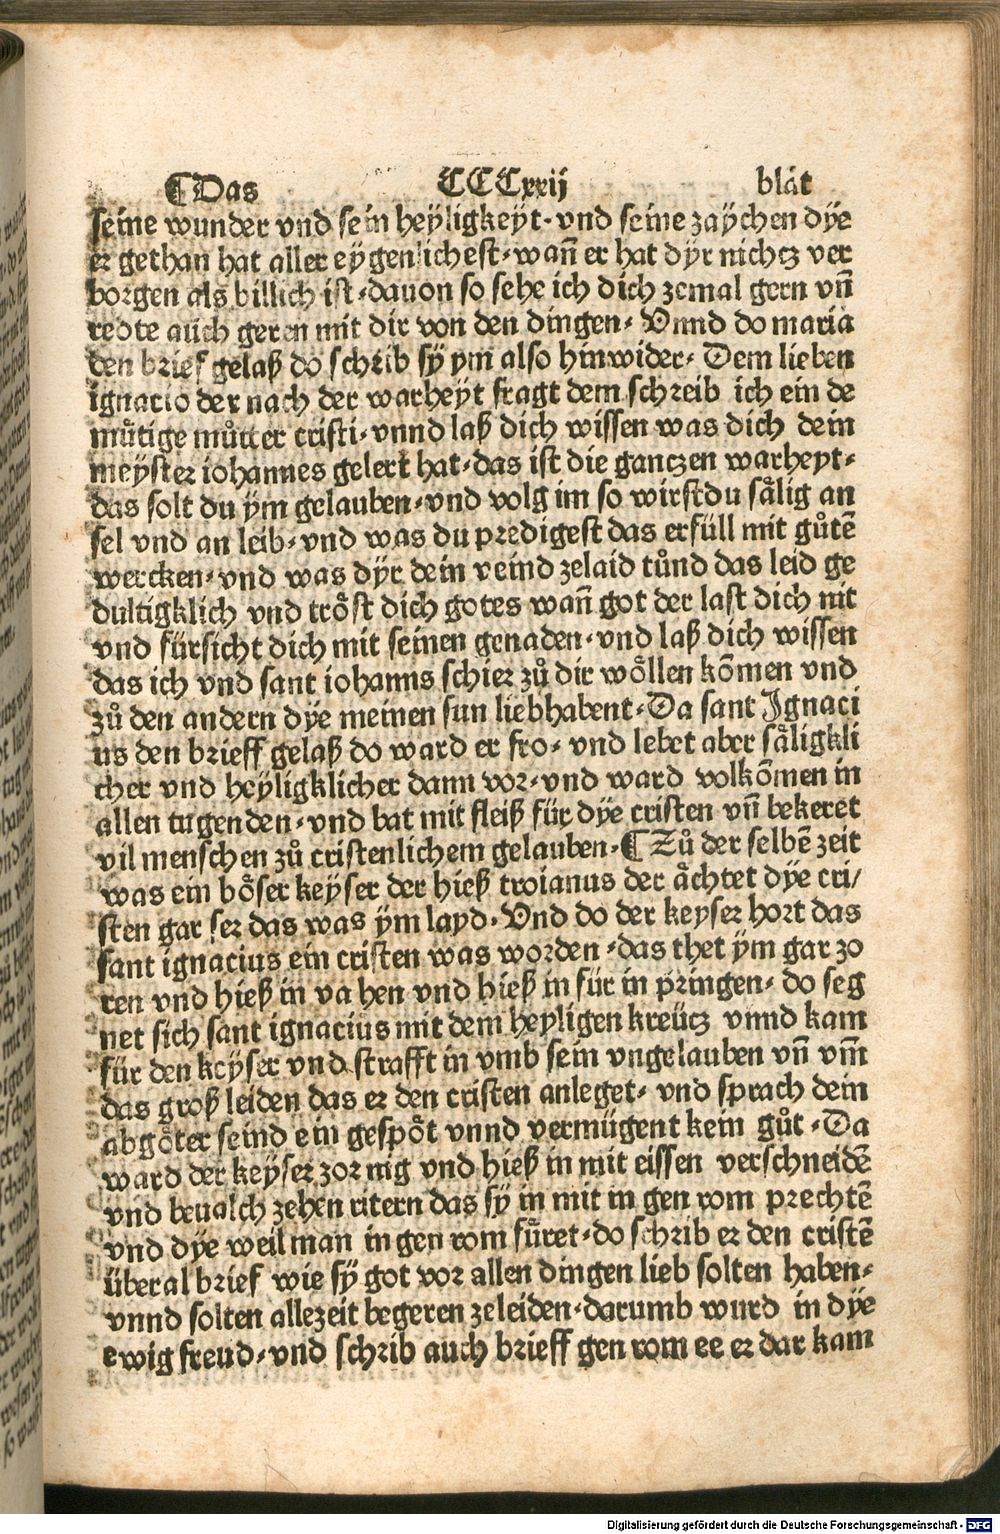 ¶Das CCCxxij blat
seine wunder vnd sein heÿligkeÿt· vnd seine zaÿchen dÿe
er gethan hat aller eÿgenlichest· wañ er hat dÿr nichcz ver
borgen als billich ist· dauon so sehe ich dich zemal gern vñ
redte auch geren mit dir von den dingen· Vnnd do maria
den brief gelaß do schrib sÿ ym also hinwider· Dem lieben
ignacio der nach der warheÿt fragt dem schreib ich ein de
muͤtige muͤtter cristi· vnnd laß dich wissen was dich dein
meÿster iohannes gelert hat· das ist die ganczen warheyt·
das solt du ÿm gelauben· vnd volg im so wirstdu saͤlig an
sel vnd an leib· vnd was du predigest das erfüll mit guͦtē
wercken· vnd was dÿr dein veind zelaid tuͦnd das leid ge
dultigklich vnd troͤst dich gotes wañ got der last dich nit
vnd fürsicht dich mit seinen genaden· vnd laß dich wissen
das ich vnd sant iohanns schier zuͦ dir woͤllen kōmen vnd
zuͦ den andern dÿe meinen sun liebhabent· Da sant Ignaci
us den brieff gelaß do ward er fro· vnd lebet aber saͤligkli
cher vnd heÿligklicher dann vor· vnd ward volkōmen in
allen tugenden· vnd bat mit fleiß für dÿe cristen vñ bekeret
vil menschen zuͦ cristenlichem gelauben· ¶ Zuͦ der selbē zeit
was ein boͤser keÿser der hieß troianus der aͤchtet dÿe cri/
sten gar ser das was ÿm layd· Vnd do der keyser hort das
sant ignacius ein cristen was worden· das thet ÿm gar zo
ren vnd hieß in va hen vnd hieß in für in pringen· do seg
net sich sant ignacius mit dem heyligen kreücz vnnd kam
für den keÿser vnd strafft in vmb sein vngelauben vñ vm̄
das groß leiden das er den cristen anleget· vnd sprach dein
abgoͤter seind ein gespoͤt vnnd vermügent kein guͦt· Da
ward der keÿser zornig vnd hieß in mit eissen verschneidē
vnd beualch zehen ritern das sÿ in mit in gen rom prechtē
vnd dÿe weil man in gen rom fuͤret· do schrib er den cristē
überal brief wie sÿ got vor allen dingen lieb solten haben·
vnnd solten allezeit begeren zeleiden· darumb wurd in dÿe
ewig freud· vnd schrib auch brieff gen rom ee er dar kam
Digitalisierung gefördert durch die Deutsche Forschungsgemeinschaft - DFG